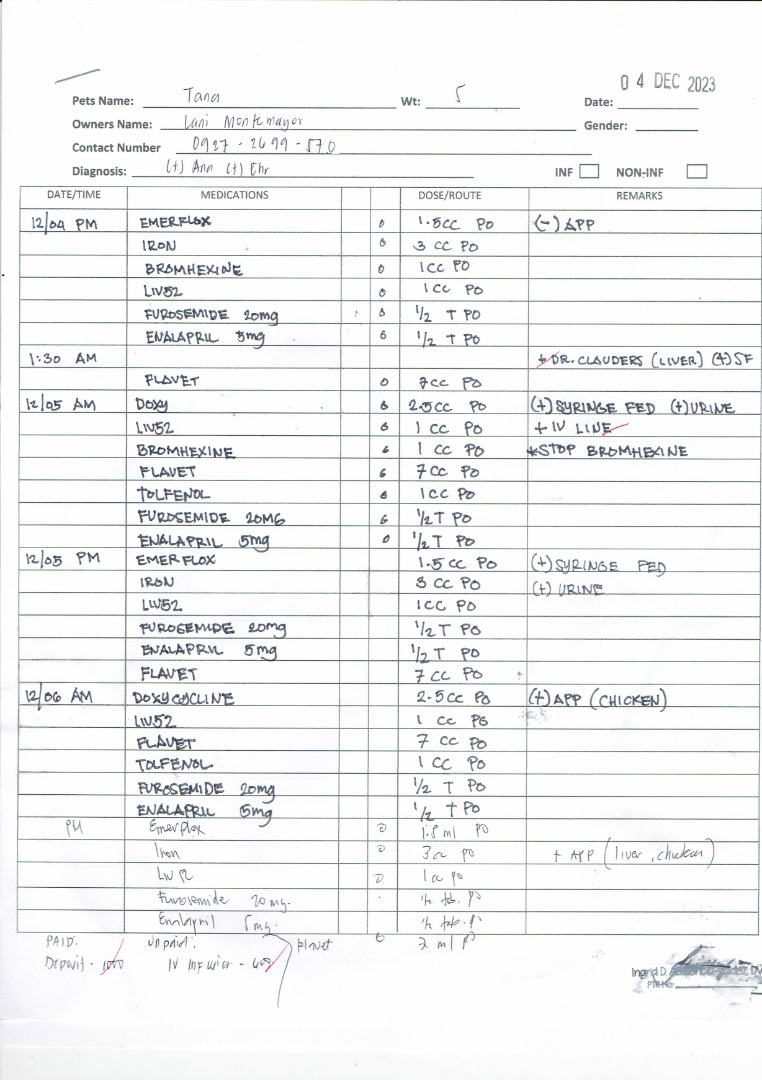 04 DEC 2023
Pets Name: Tana Wt: 5 Date:
Owners Name: Lani Montemayor Gender:
Contact Number 0927-2699-570
Diagnosis: (+) Ana (+) Ehr INF NON-INF
DATE/TIME MEDICATIONS DOSE/ROUTE REMARKS
12/04 PM EMERFLOX 1.5cc PO (-) APP
IRON 3 CC PO
BROMHEXINE 1CC PO
LIV52 1CC PO
FUROSEMIDE 20mg 1/2 T PO
ENALAPRIL 5mg 1/2 T PO
1:30 AM + DR. CLAUDERS (LIVER) (+) SF
FLAVET 7CC PO
12/05 AM DOXY 2.5CC PO (+) SYRINGE FED (+) URINE
LIV52 1 CC PO + IV LINE
BROMHEXINE 1 CC PO *STOP BROMHEXINE
FLAVET 7 CC PO
TOLFENOL 1CC PO
FUROSEMIDE 20MG 1/2 T PO
ENALAPRIL 5mg 1/2 T PO
12/05 PM EMERFLOX 1.5CC PO (+) SYRINGE FED
IRON 3 CC PO (+) URINE
LIV52 1CC PO
FUROSEMIDE 20mg 1/2 T PO
ENALAPRIL 5mg 1/2 T PO
FLAVET 7 CC PO
12/06 AM DOXYCYCLINE 2.5CC PO (+) APP (CHICKEN)
LIV52 1 CC PO
FLAVET 7 CC PO
TOLFENOL 1 CC PO
FUROSEMIDE 20mg 1/2 T PO
ENALAPRIL 5mg 1/2 T PO
PM Emerflox ml PO
Iron 3cc PO + APP (liver, chicken)
1cc PO
Furosemide 20 mg. 1/2 tab. PO
Enalapril 5mg. 1/2 tab. PO
PAID: Unpaid: Flavet ml PO
Deposit - 1000 IV -
Ingrid D.
PTR No.